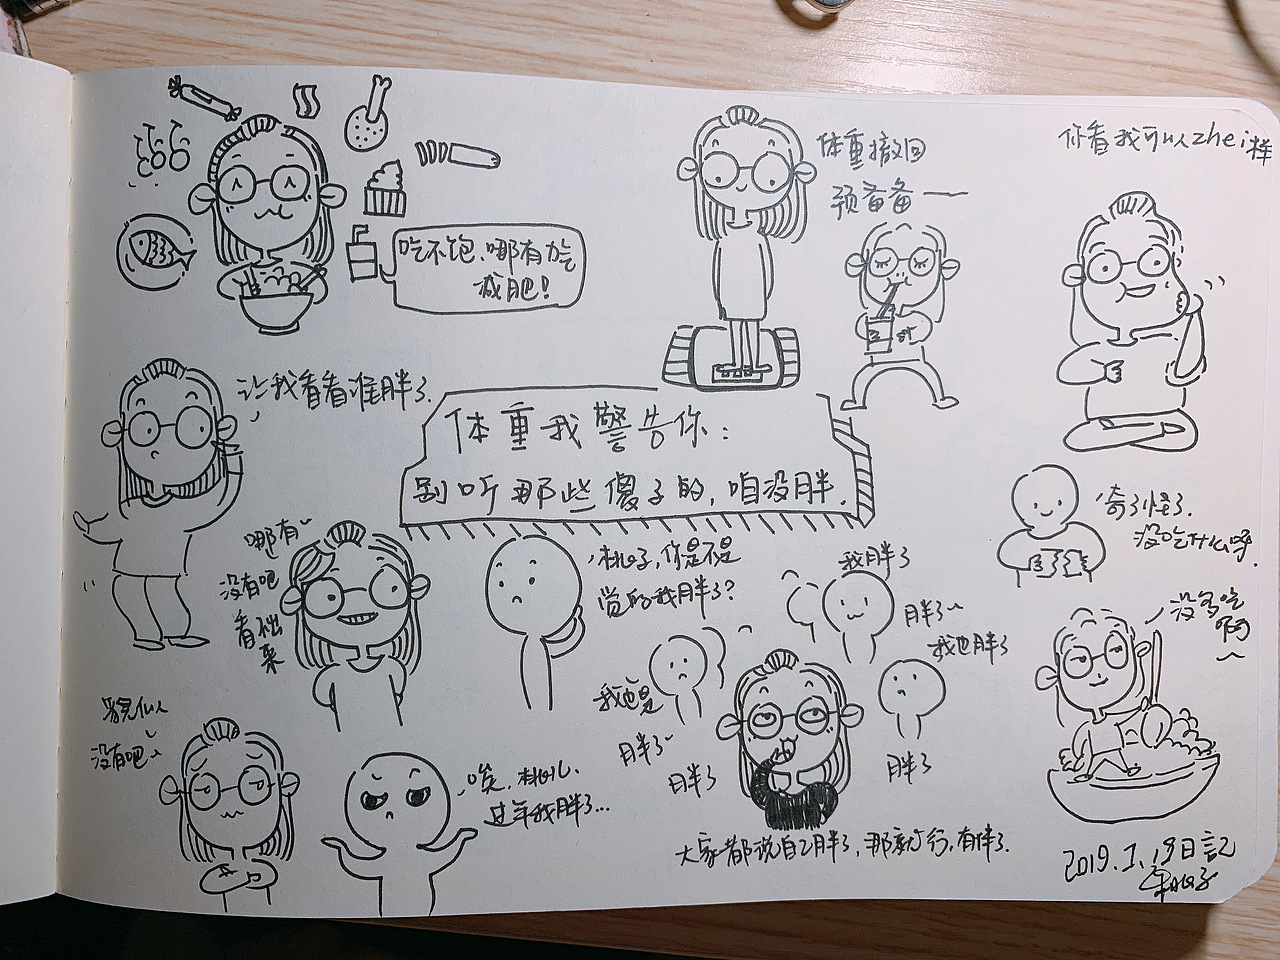 吃不饱、哪有力气
减肥!
体重撤回
预备备——
你看我可以zhei样
让我看看谁胖了.
体重我警告你:
别听那些傻子的,咱没胖.
奇了怪了.
没吃什么呀.
哪有~
没有吧
看起来
桃子,你是不是
觉的我胖了?
我胖了
胖了~
我也胖了
我也是
胖了~
胖了
胖了
没多吃
啊
没有吧~
唉,桃儿、
过年我胖了...
大家都说自己胖了,那就行,有伴了.
2019.2.19日記